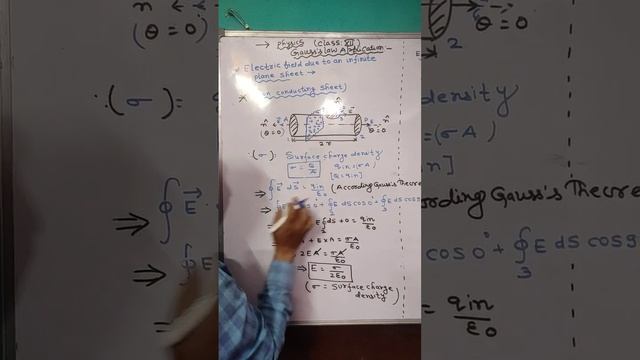 → Physics (class: XII)
Gauss's law Application -
Electric field due to an infinite
plane sheet →
conducting sheet)
n̂
n̂ E⃗ A
(θ=0)
n̂
θ=0
2r
(σ): Surface charge density
σ = Q/A qin = (σA)
[Q = qin]
⇒ ∮ E⃗ dS⃗ = qin/ε0 (According Gauss's Theore
⇒ ∮ E + ∮ E ds cos 0° + ∮ E ds cos 9
E ∮ ds + 0 = qin/ε0
+ E×A = σA/ε0
2EA = σA/ε0
⇒ E = σ/2ε0
(σ = Surface charge
density)
n̂
(θ=0)
∴ (σ):
∮ E⃗
⇒
⇒ ∮ E
2
density
σA)
in]
ording Gauss's Theore
cos 0° + ∮ E ds cos 9
3
= qin/ε0